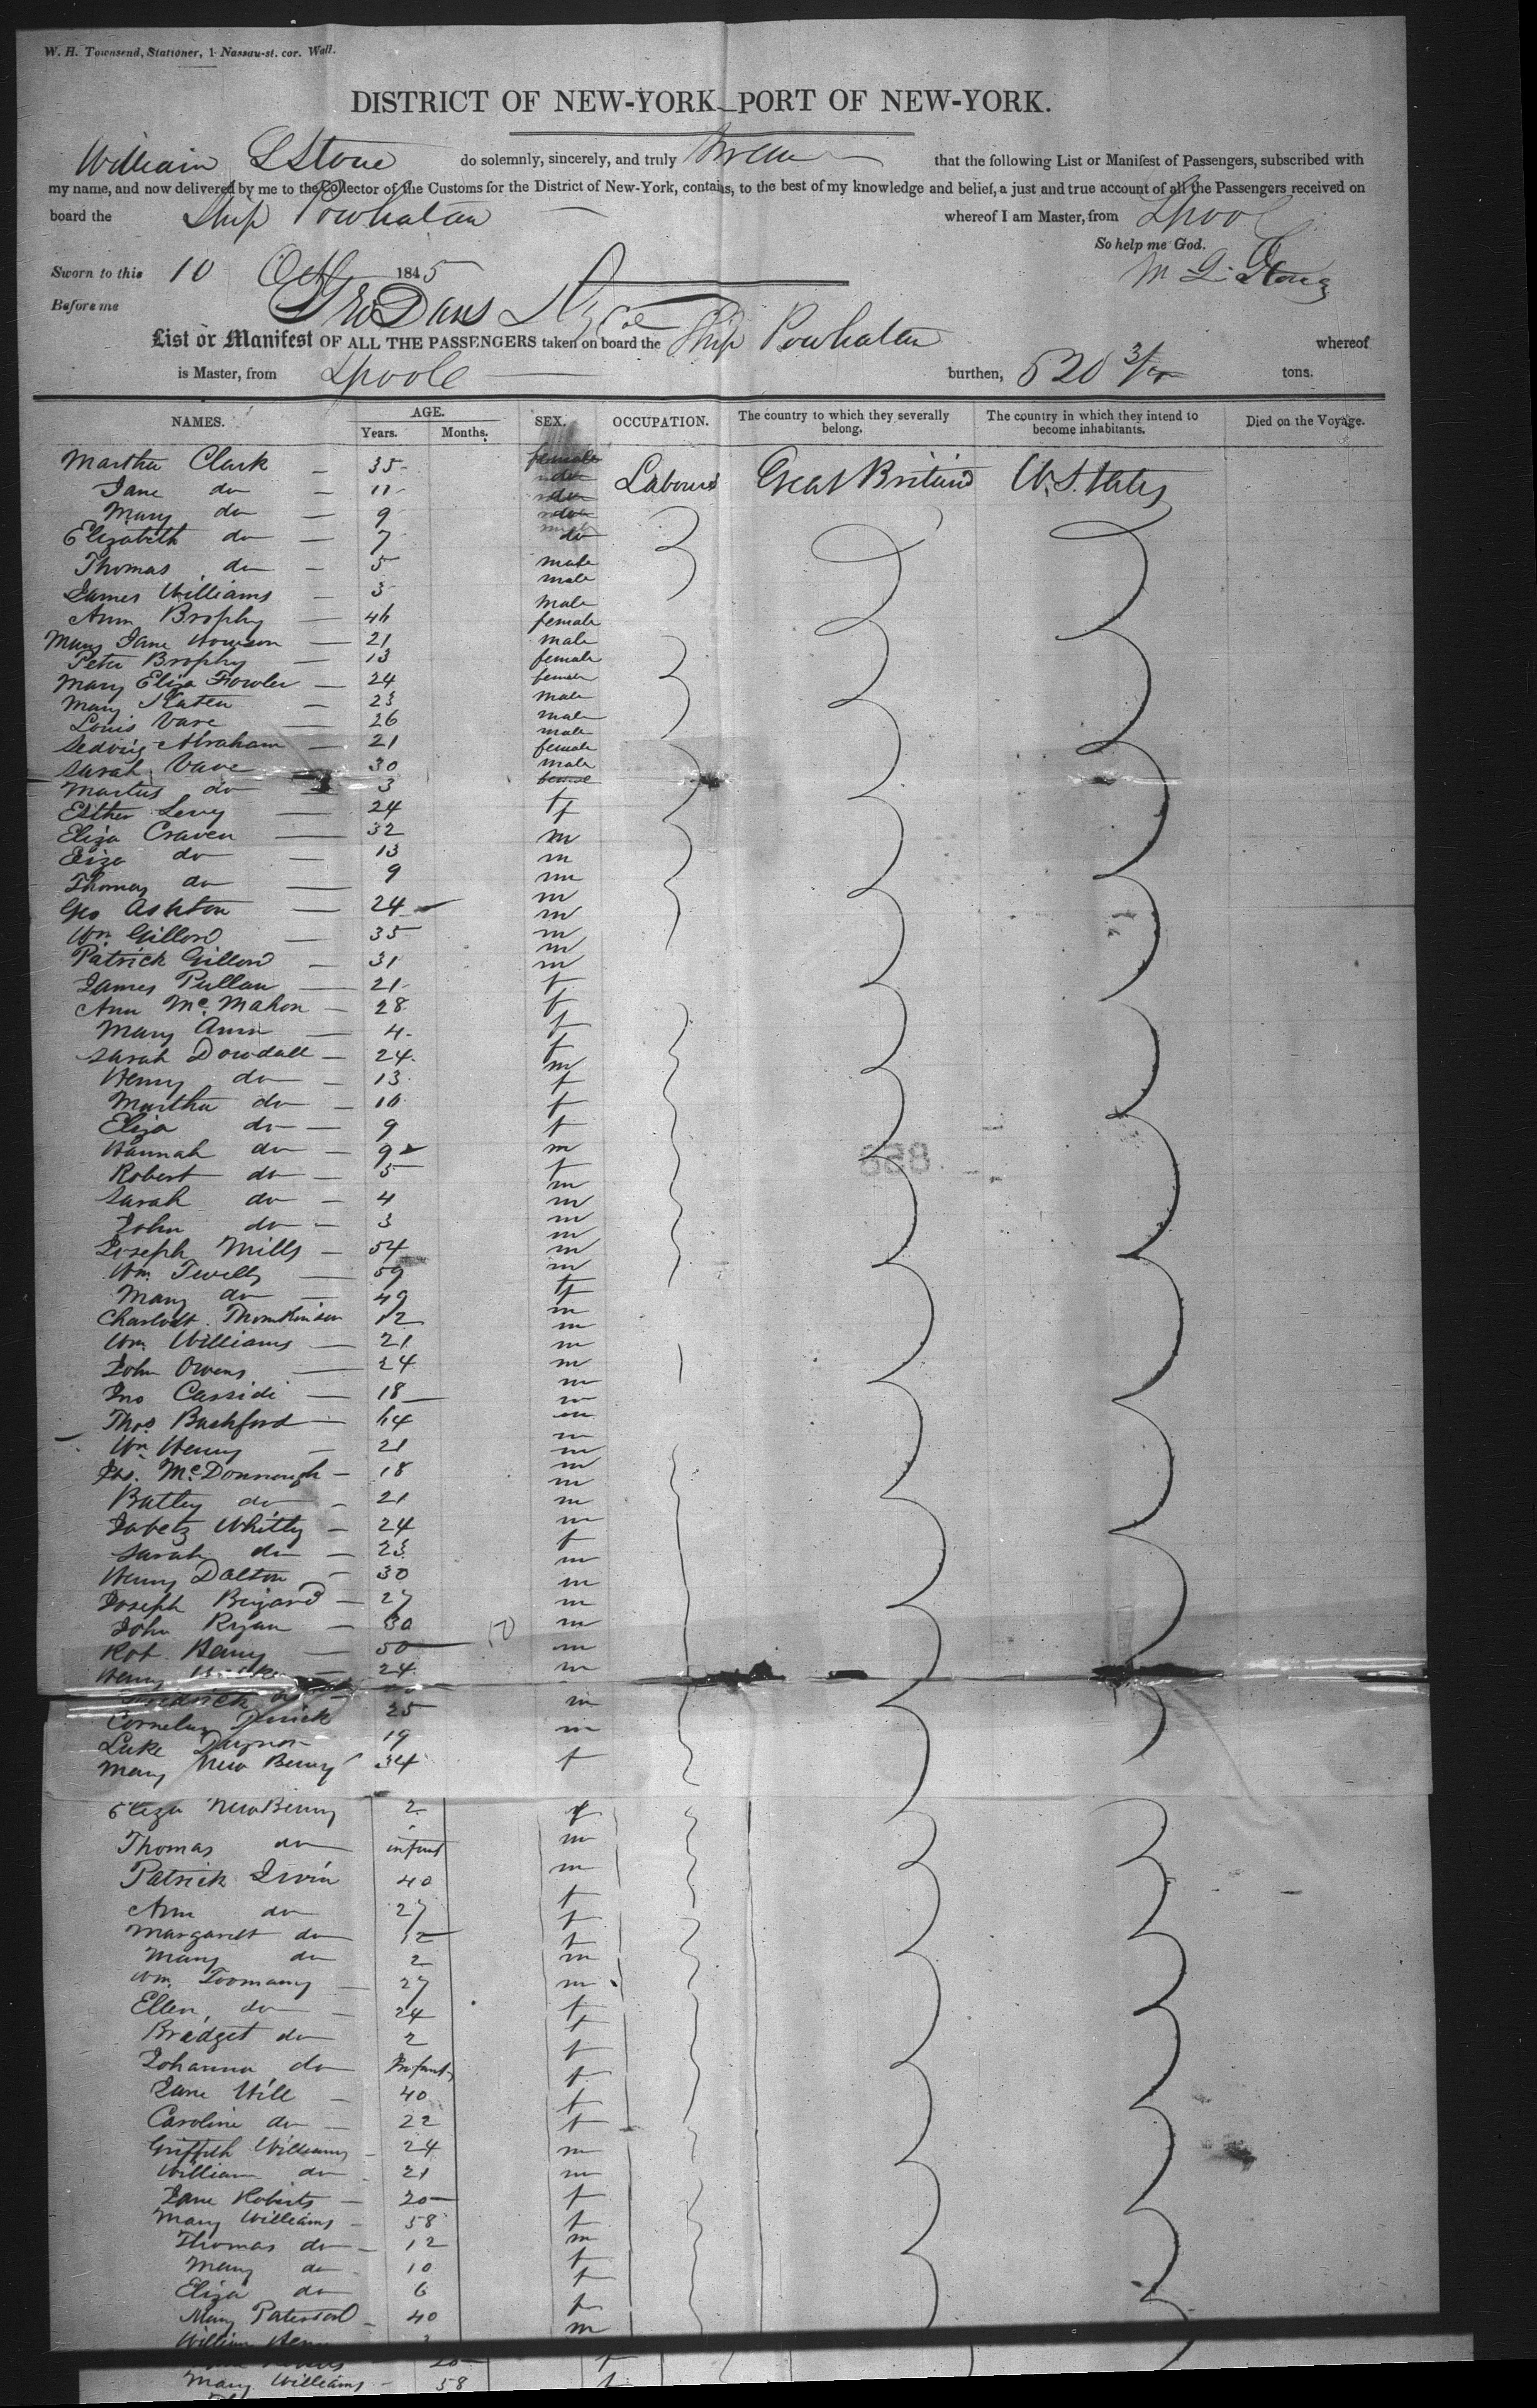 W. H. Townsend, Stationer, 1 Nassau-st. cor. Wall.
DISTRICT OF NEW-YORK—PORT OF NEW-YORK.
William L Stone do solemnly, sincerely, and truly Swear that the following List or Manifest of Passengers, subscribed with
my name, and now delivered by me to the Collector of the Customs for the District of New-York, contains, to the best of my knowledge and belief, a just and true account of all the Passengers received on
board the Ship Powhatan whereof I am Master, from Lpool
So help me God.
Sworn to this 10 Oct 1845
Before me
List or Manifest OF ALL THE PASSENGERS taken on board the Ship Powhatan whereof
is Master, from Lpoole burthen, tons.
NAMES. AGE. SEX. OCCUPATION. The country to which they severally belong. The country in which they intend to become inhabitants. Died on the Voyage.
Years. Months.
Martha Clark — 35 female Labourers Great Britain U. States
Jane do — 11 do
Mary do — 9 do
Elizabeth do — 7 do
Thomas do — 5 male
James Williams — 3 male
Ann Brophy — 46 male
Mary Jane — 21 female
Peter Brophy — 13 male
Mary Eliza Fowler — 24 female
Mary Slater — 23 female
Louis Vare — 26 male
Abraham — 21 male
Sarah Vare — 30 male
do — 3 female
Esther Levy — 24 male
Eliza Craven — 32 f
Eliza do — 13 f
Thomas do — 9 m
Geo Ashton — 24 m
Wm Gillord — 35 m
Patrick Gillord — 31 m
James Pullan — 21 m
Ann McMahon — 28 f
Mary Ann — 4 f
Sarah Dowdall — 24 f
Henry do — 13 m
Martha do — 10 f
Eliza do — 9 f
Hannah do — 9 f
Robert do — 5 m
Sarah do — 4 f
John do — 3 m
Joseph Mills — 54 m
Wm. Twelly — 59 m
Mary do — 49 f
Charlott Thomkinson 12 f
Wm. Williams — 21 m
John Owens — 24 m
Jno Cassidi — 18 m
Thos Bashford — 64 m
Wm Henry — 21 m
McDonnough — 18 m
Batley do — 21 m
Jabetz Whitty — 24 m
Sarah do — 23 f
Henry Dalton — 30 m
Joseph — 27 m
John Ryan — 30 m
Rob Henry — 50 m
Henry — 24 m
Fredrick
Cornelius 25 m
Luke 19 m
Mary New Berry 34 f
Eliza NewBerry 2 f
Thomas do infant m
Patrick Irvin 40 m
Ann do 27 f
Margarett do 12 f
Mary do 2 f
Wm. Toomany — 27 m
Ellen do — 24 f
Bridget do 2 f
Johanna do Infant f
Jane Hill — 40 f
Caroline do — 22 f
Griffith Williams — 24 m
William do 21 m
Jane Roberts — 20 f
Mary Williams — 58 f
Thomas do — 12 m
Mary do 10 f
Eliza do 6 f
Mary Paterson — 40 f
William m
Mary Williams — 58 f